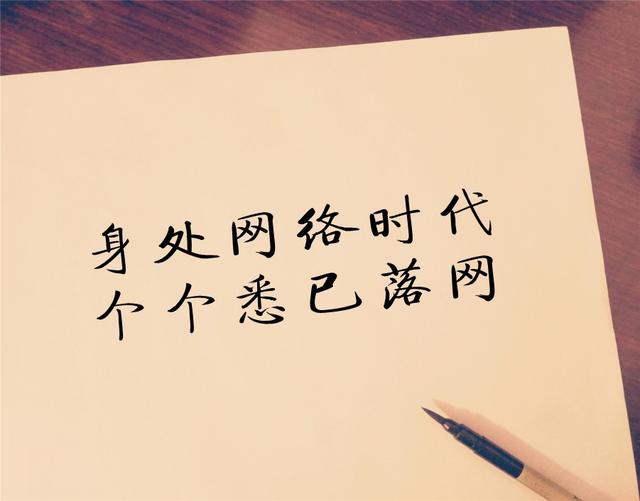 身处网络时代
个个悉已落网